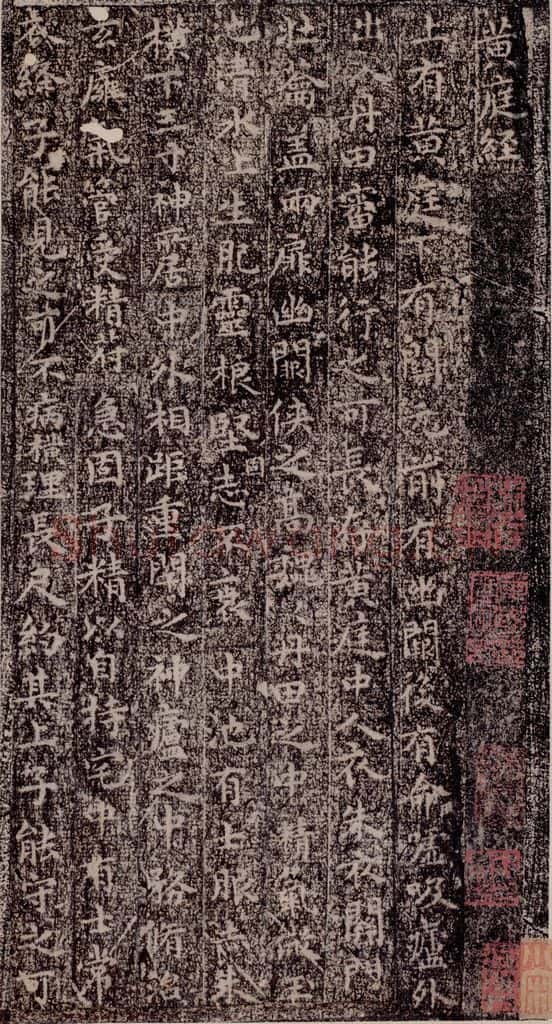 黃庭經
上有黃庭下有關元前有幽闕後有命噓吸廬外
出入丹田審能行之可長存黃庭中人衣朱衣關門
壯籥蓋兩扉幽闕俠之高魏魏丹田之中精氣微玉
池清水上生肥靈根堅志不衰中池有士服赤朱
橫下三寸神所居中外相距重閉之神廬之中務脩治
玄廱氣管受精符急固子精以自持宅中有士常
衣絳子能見之可不病橫理長尺約其上子能守之可